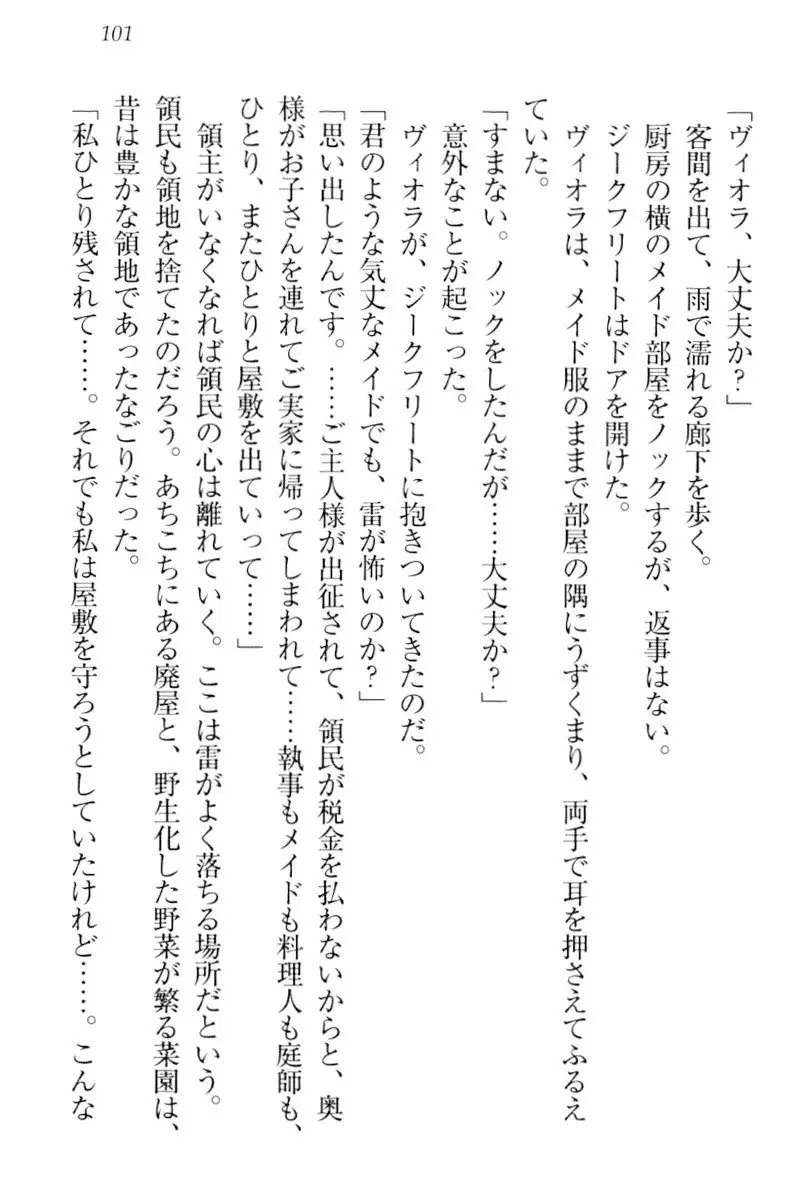 101
「ヴィオラ、大丈夫か?」
客間を出て、雨で濡れる廊下を歩く。
厨房の横のメイド部屋をノックするが、返事はない。
ジークフリートはドアを開けた。
ヴィオラは、メイド服のままで部屋の隅にうずくまり、両手で耳を押さえてふるえ
ていた。
「すまない。ノックをしたんだが……大丈夫か?」
意外なことが起こった。
ヴィオラが、ジークフリートに抱きついてきたのだ。
「君のような気丈なメイドでも、雷が怖いのか?」
「思い出したんです。……ご主人様が出征されて、領民が税金を払わないからと、奥
様がお子さんを連れてご実家に帰ってしまわれて……執事もメイドも料理人も庭師も、
ひとり、またひとりと屋敷を出ていって……」
領主がいなくなれば領民の心は離れていく。ここは雷がよく落ちる場所だという。
領民も領地を捨てたのだろう。あちこちにある廃屋と、野生化した野菜が繁る菜園は、
昔は豊かな領地であったなごりだった。
「私ひとり残されて……。それでも私は屋敷を守ろうとしていたけれど……。こんな